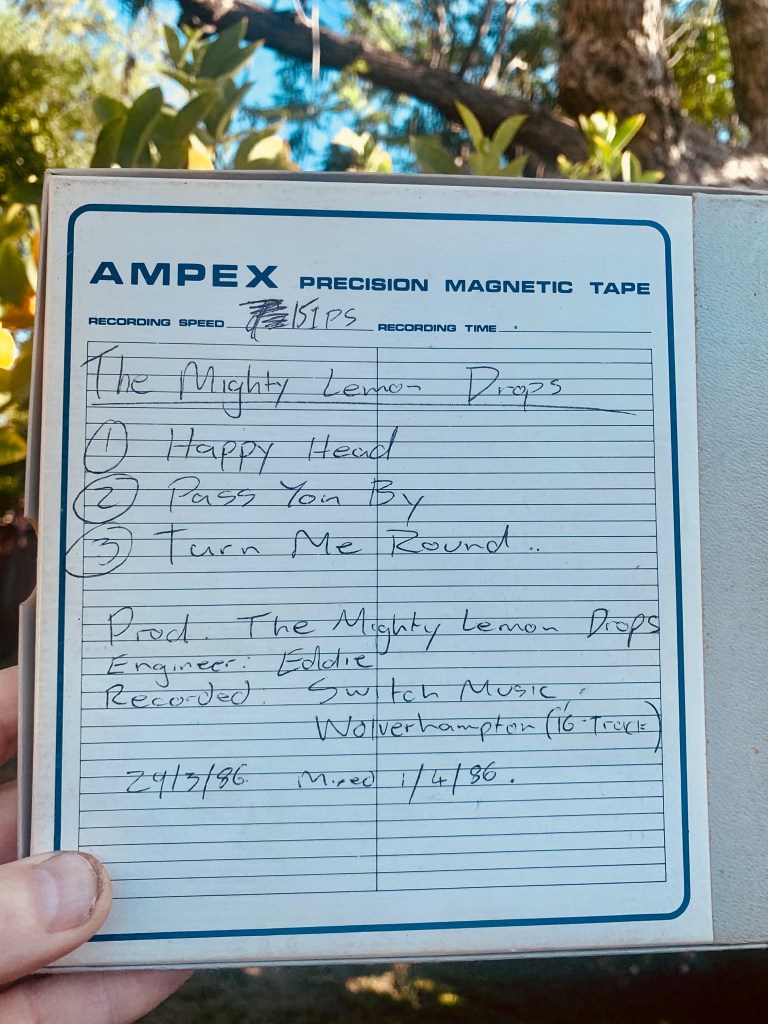 AMPEX PRECISION MAGNETIC TAPE
RECORDING SPEED 15IPS RECORDING TIME
The Mighty Lemon Drops
① Happy Head
② Pass You By
③ Turn Me Round..
Prod. The Mighty Lemon Drops
Engineer: Eddie
Recorded. Switch Music,
Wolverhampton (16-Track)
29/3/86 Mixed 1/4/86.